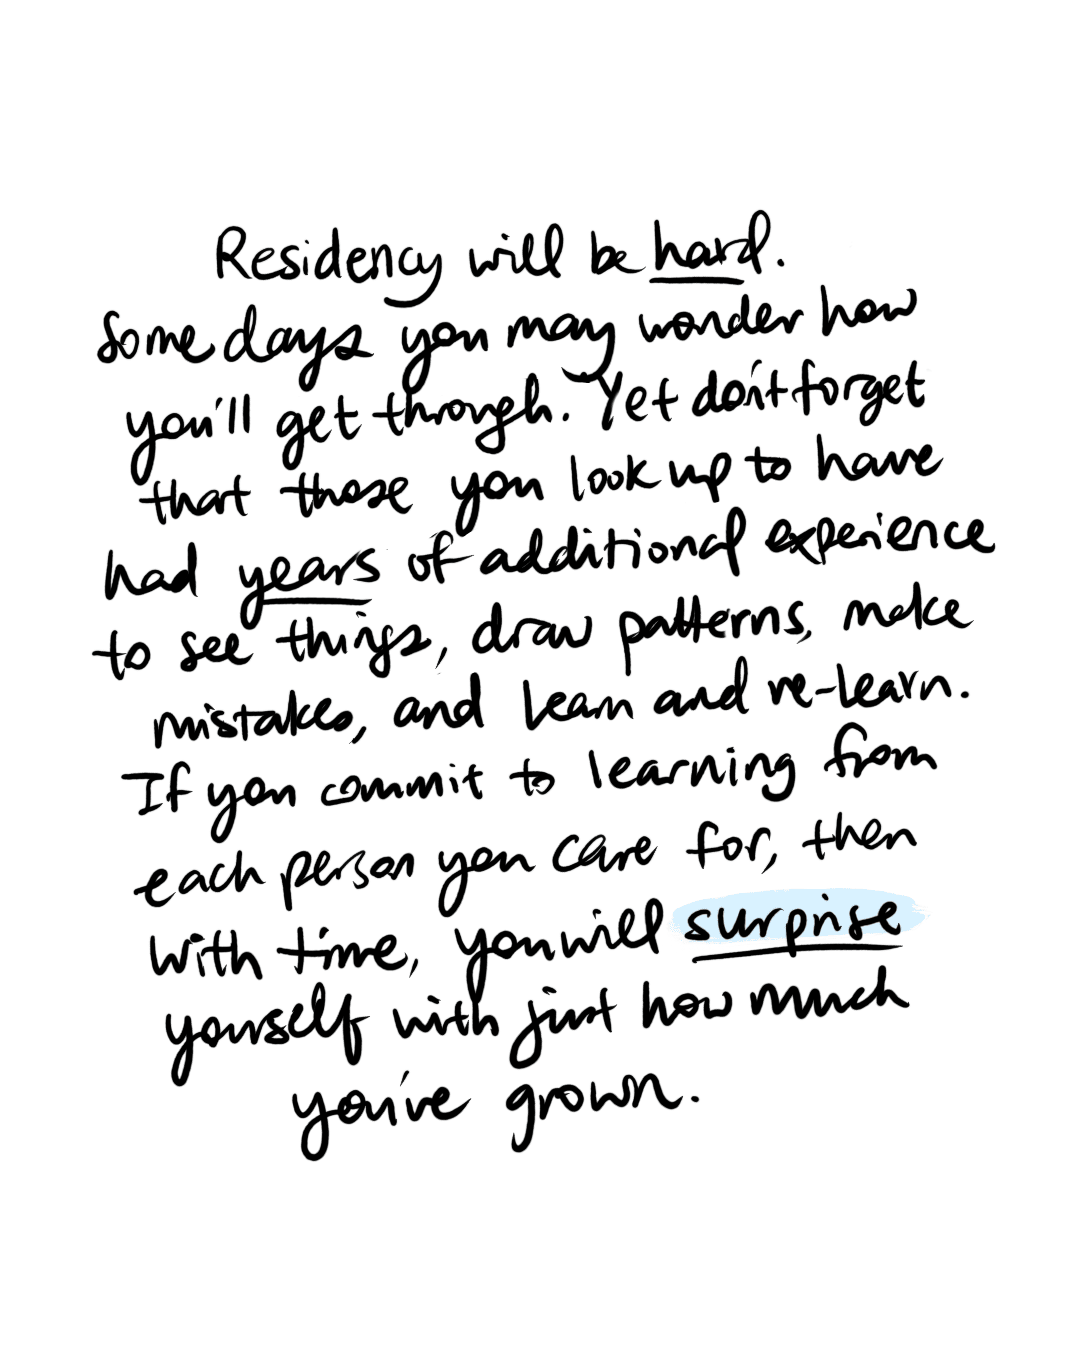 Residency will be hard.
Some days you may wonder how
you'll get through. Yet don't forget
that those you look up to have
had years of additional experience
to see things, draw patterns, make
mistakes, and learn and re-learn.
If you commit to learning from
each person you care for, then
with time, you will surprise
yourself with just how much
you've grown.